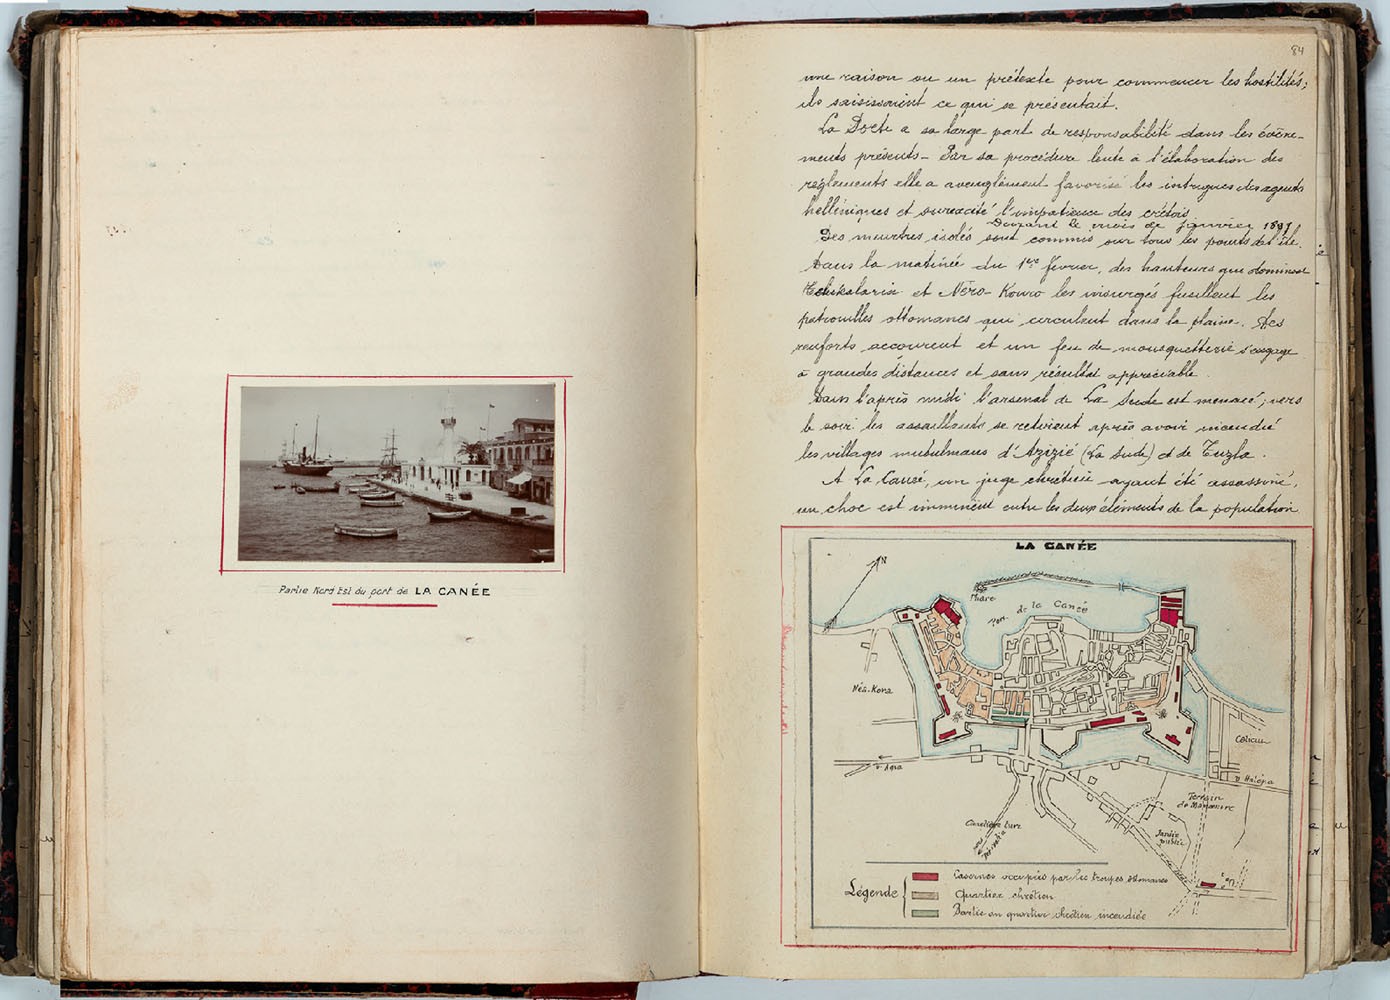 Partie Nord Est du port de LA CANÉE
84
une raison ou un prétexte pour commencer les hostilités;
ils saisissaient ce qui se présentait.
La Porte a sa large part de responsabilité dans les évène-
ments présents - Par sa procédure lente à l'élaboration des
réglements elle a aveuglément favorisé les intrigues des agents
helléniques et surexcité l'impatience des crétois
Durant le mois de janvier 1897
Des meurtres isolés sont commis sur tous les points de l'île.
Dans la matinée du 1er février, des hauteurs qui dominent
Tchikalaria et Néro-Kouro les insurgés fusillent les
patrouilles ottomanes qui circulent dans la plaine. Des
renforts accourent et un feu de mousquetterie s'engage
à grandes distances et sans résultat appréciable
Dans l'après midi l'arsenal de La Sude est menacé; vers
le soir les assaillants se retirent après avoir incendié
les villages musulmans d'Azizié (La Sude) et de Tuzla.
A La Canée, un juge chrétien ayant été assassiné,
un choc est imminent entre les deux éléments de la population
LA CANÉE
N
Phare
Port de la Canée
Néa-Kora
v. Halépa
Terrain
de Manoeuvre
Jardin
public
Cimetière turc
vers
Légende
Casernes occupées par les troupes ottomanes
Quartier chrétien
Partie du quartier chrétien incendiée